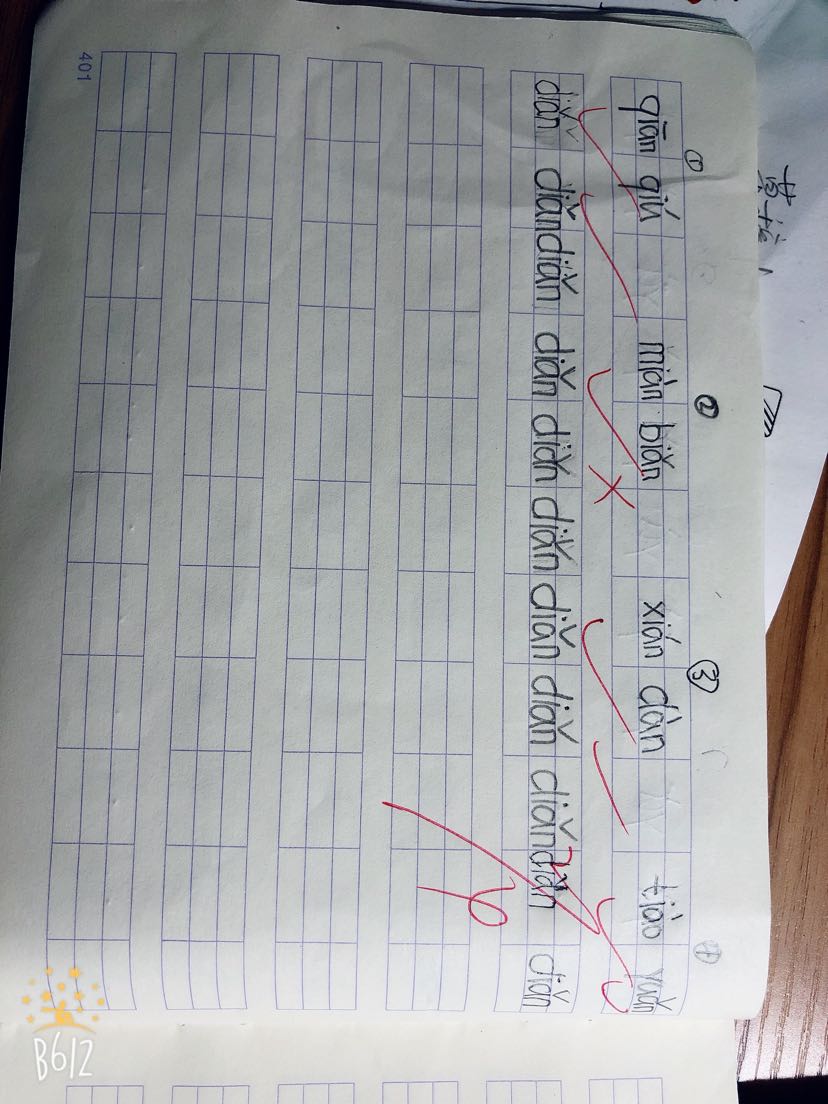 ① ② ③ ④
qiān qiú mián biǎn xián dàn tiào yuǎn
diǎn diǎn diǎn diǎn diǎn diǎn diǎn diǎn diǎn diǎn diǎn
401
B612